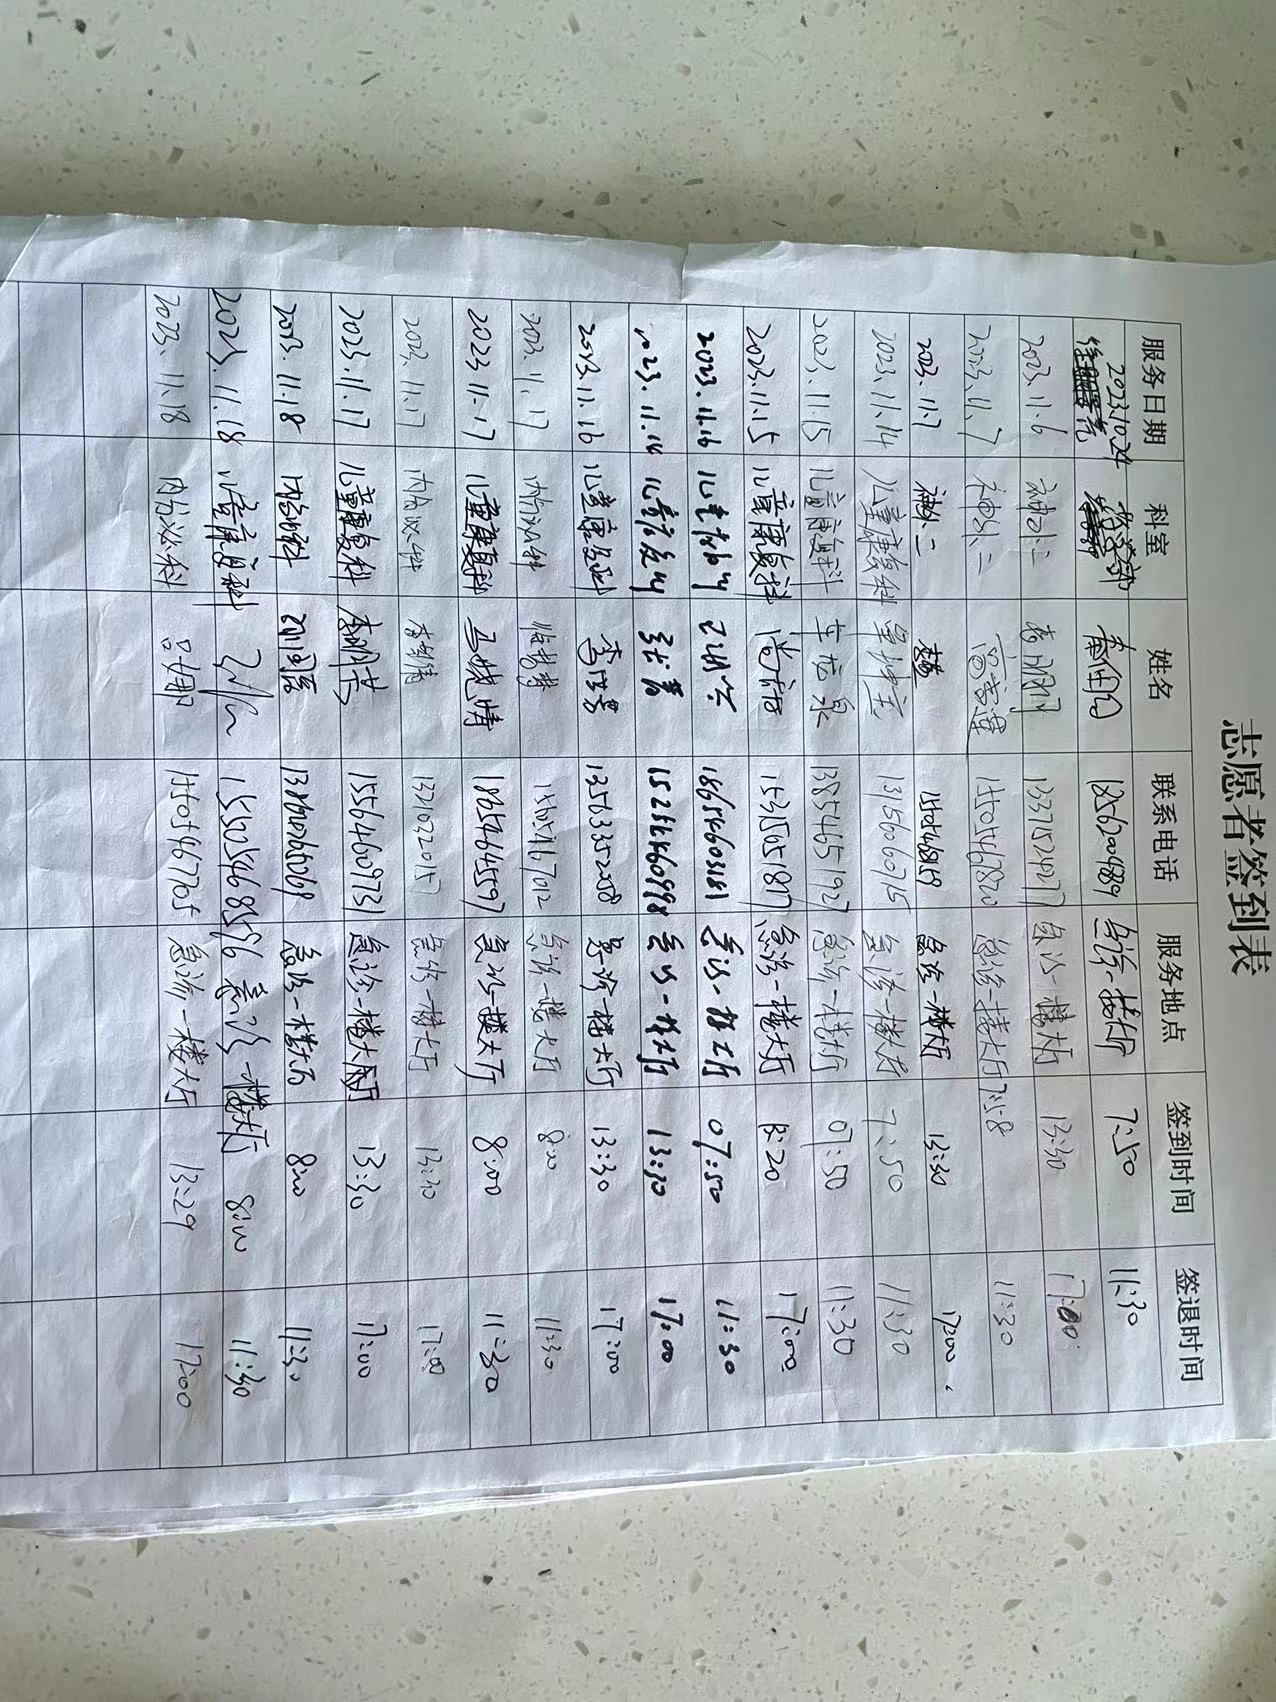 志愿者签到表
服务日期 科室 姓名 联系电话 服务地点 签到时间 签退时间
2023.10.24 18562004889 急诊一楼大厅 7:50 11:30
2023.11.6 神外二 13375924977 急诊一楼大厅 13:30 17:00
2023.11.7 神外二 15505467820 急诊一楼大厅 7:58 11:30
2023.11.7 神外二 15505468159 急诊一楼大厅 13:30 17:00
2023.11.14 儿童康复科 13156060715 急诊一楼大厅 7:50 11:30
2023.11.15 儿童康复科 13854651927 急诊一楼大厅 07:50 11:30
2023.11.15 儿童康复科 15315051817 急诊一楼大厅 17:00
2023.11.16 儿童康复科 18654603181 急诊一楼大厅 07:50 11:30
2023.11.16 儿童康复科 急诊一楼大厅 13:30 17:00
2023.11.16 儿童康复科 13563352058 急诊一楼大厅 13:30 17:00
2023.11.17 内分泌科 急诊一楼大厅 8:00 11:30
2023.11.17 儿童康复科 马晓情 18654645597 急诊一楼大厅 8:00 11:30
2023.11.17 内分泌科 13210320157 急诊一楼大厅 13:30 17:00
2023.11.17 儿童康复科 李明芳 15564609731 急诊一楼大厅 13:30 17:00
2023.11.18 内分泌科 急诊一楼大厅 8:00 11:30
2023.11.18 儿童康复科 15502468596 急诊一楼大厅 8:00 11:30
2023.11.18 内分泌科 吕娜 15505467765 急诊一楼大厅 13:29 17:00